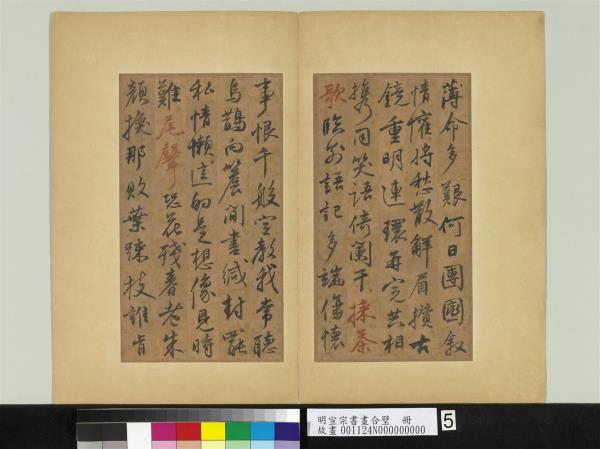 薄命多艱何日團圞叙
情懽將愁散解眉攢古
鏡重明連環再完共相
携同笑語倚闌干採茶
歌臨分語記多端傷懷
事恨千般空教我常聽
烏鵲向簷間書緘封罷
私情懶這的是想像見時
難尾聲恐花殘春老朱
顏換那敗葉踈枝誰肯
明宣宗書畫合璧 冊
故畫 001124N000000000
5